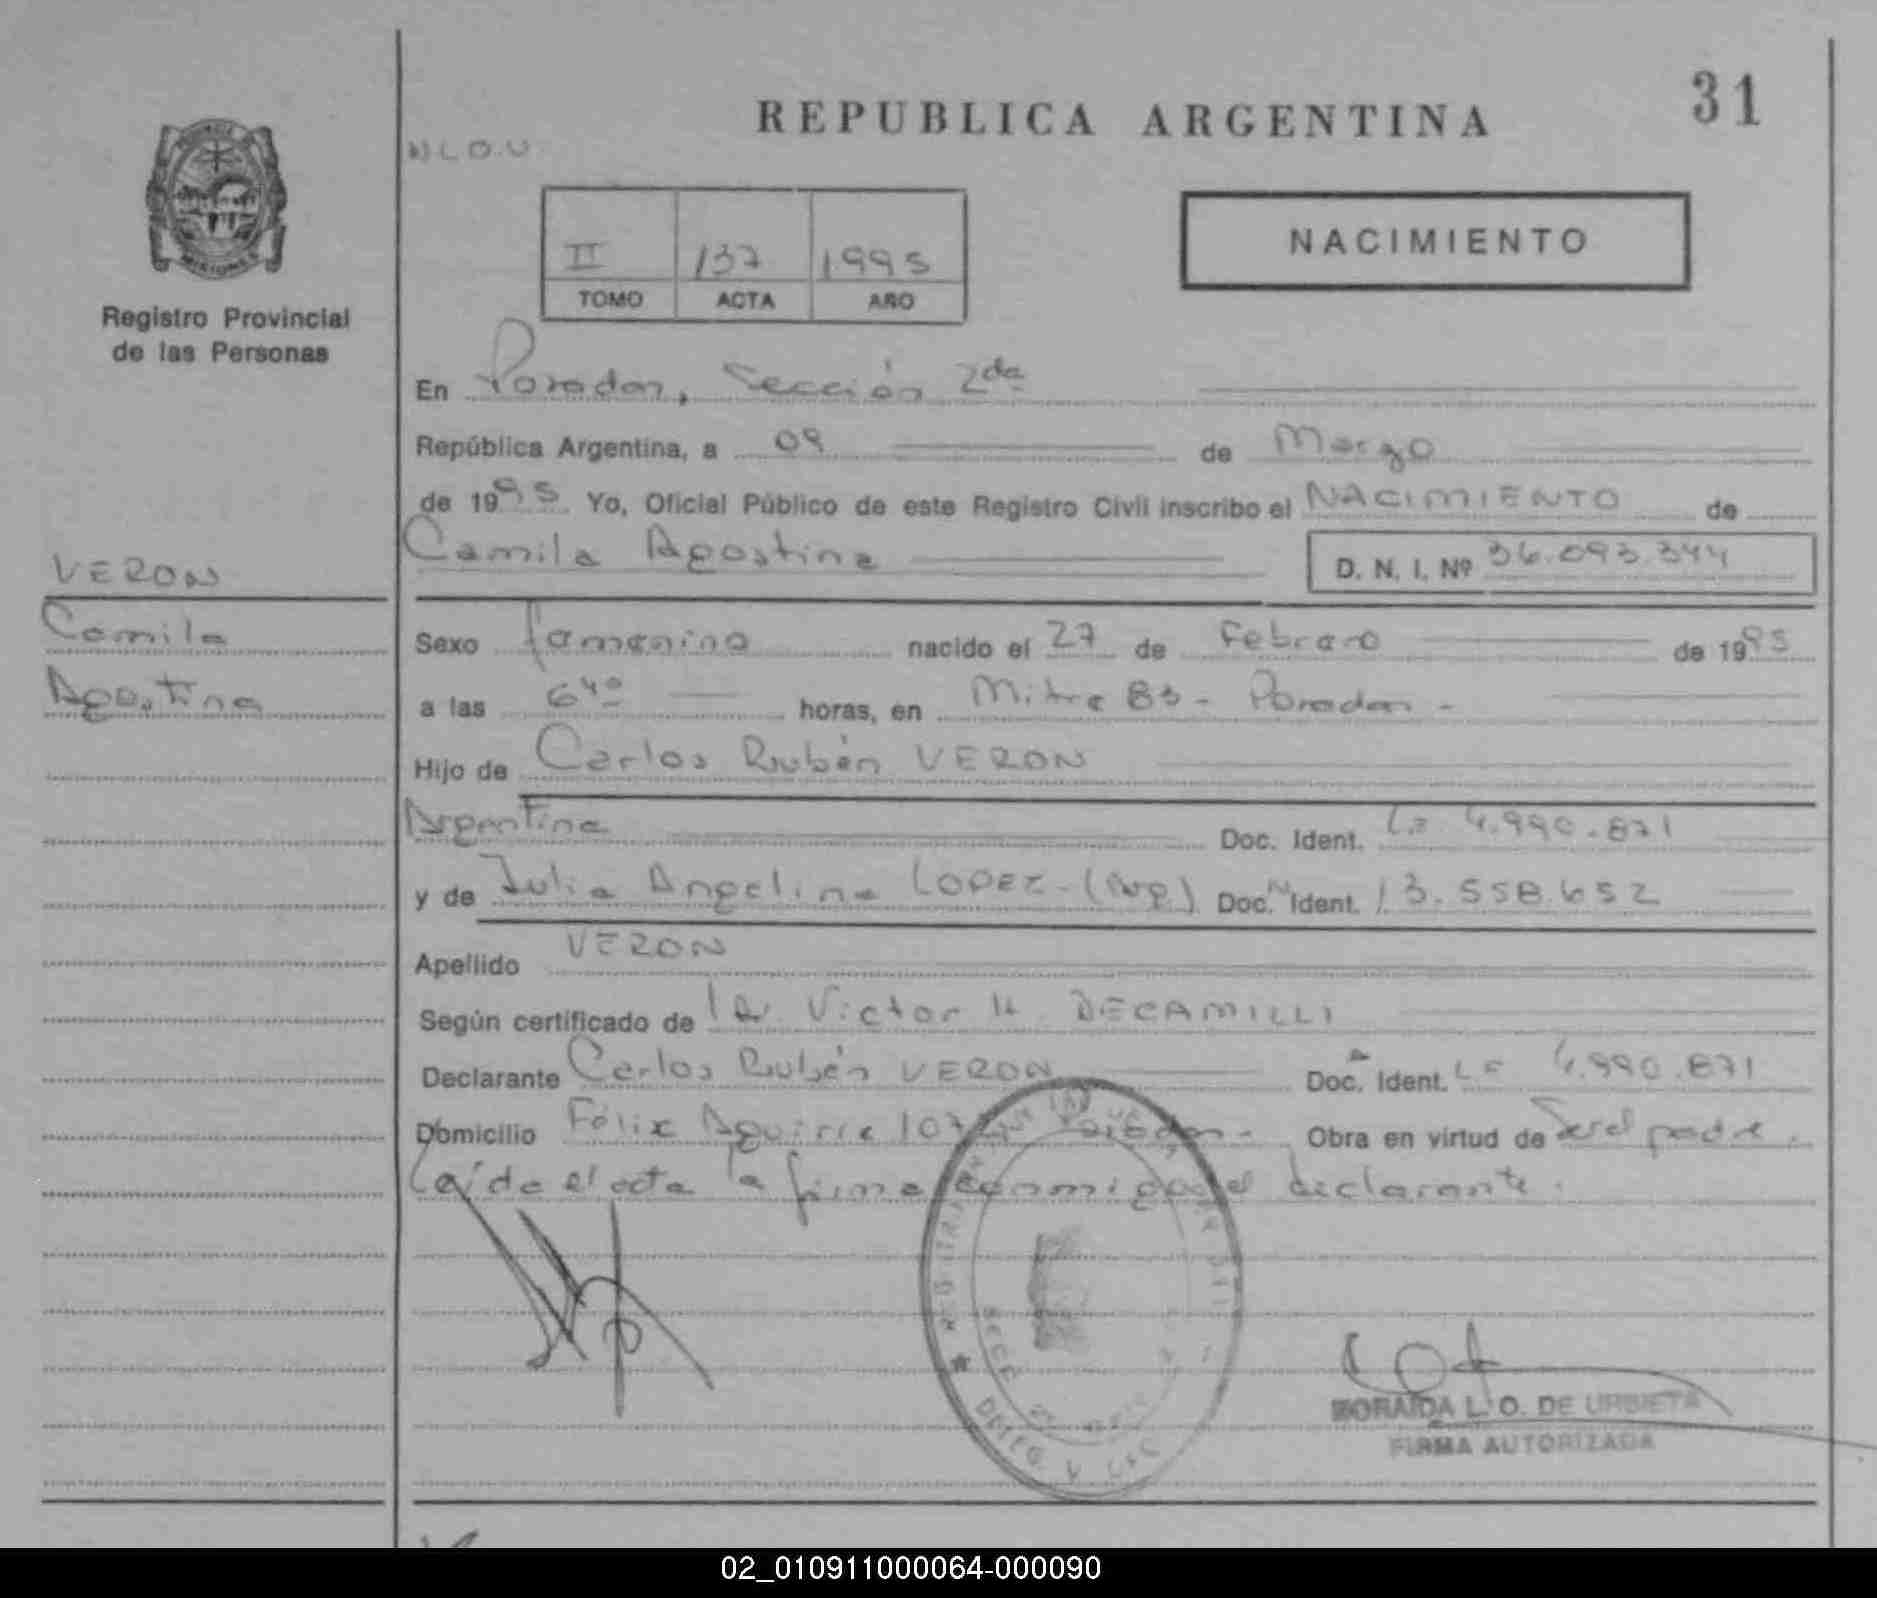 REPUBLICA ARGENTINA
31
N.L.O.U.
II 137 1.995
TOMO ACTA AÑO
NACIMIENTO
MISIONES
Registro Provincial
de las Personas
En Posadas, Sección 2da
República Argentina, a 09 de Marzo
de 1995 Yo, Oficial Público de este Registro Civil inscribo el NACIMIENTO de
Camila Agostina D. N. I. Nº 36.093.344
VERON
Camila
Agostina
Sexo femenino nacido el 27 de Febrero de 1995
a las 6 40 horas, en Mitre 83 - Posadas -
Hijo de Carlos Rubén VERON
Argentina Doc. Ident. LE 4.990.871
y de Julia Angelina LOPEZ - (Arg) Doc. Ident. 13.558.652
Apellido VERON
Según certificado de Dr. Victor H. DECAMILLI
Declarante Carlos Rubén VERON Doc. Ident. LE 4.990.871
Domicilio Félix Aguirre Posadas - Obra en virtud de Ser el padre.
Leída el acta la firma conmigo el declarante.
L. O. DE URBIETA
FIRMA AUTORIZADA
02_010911000064-000090